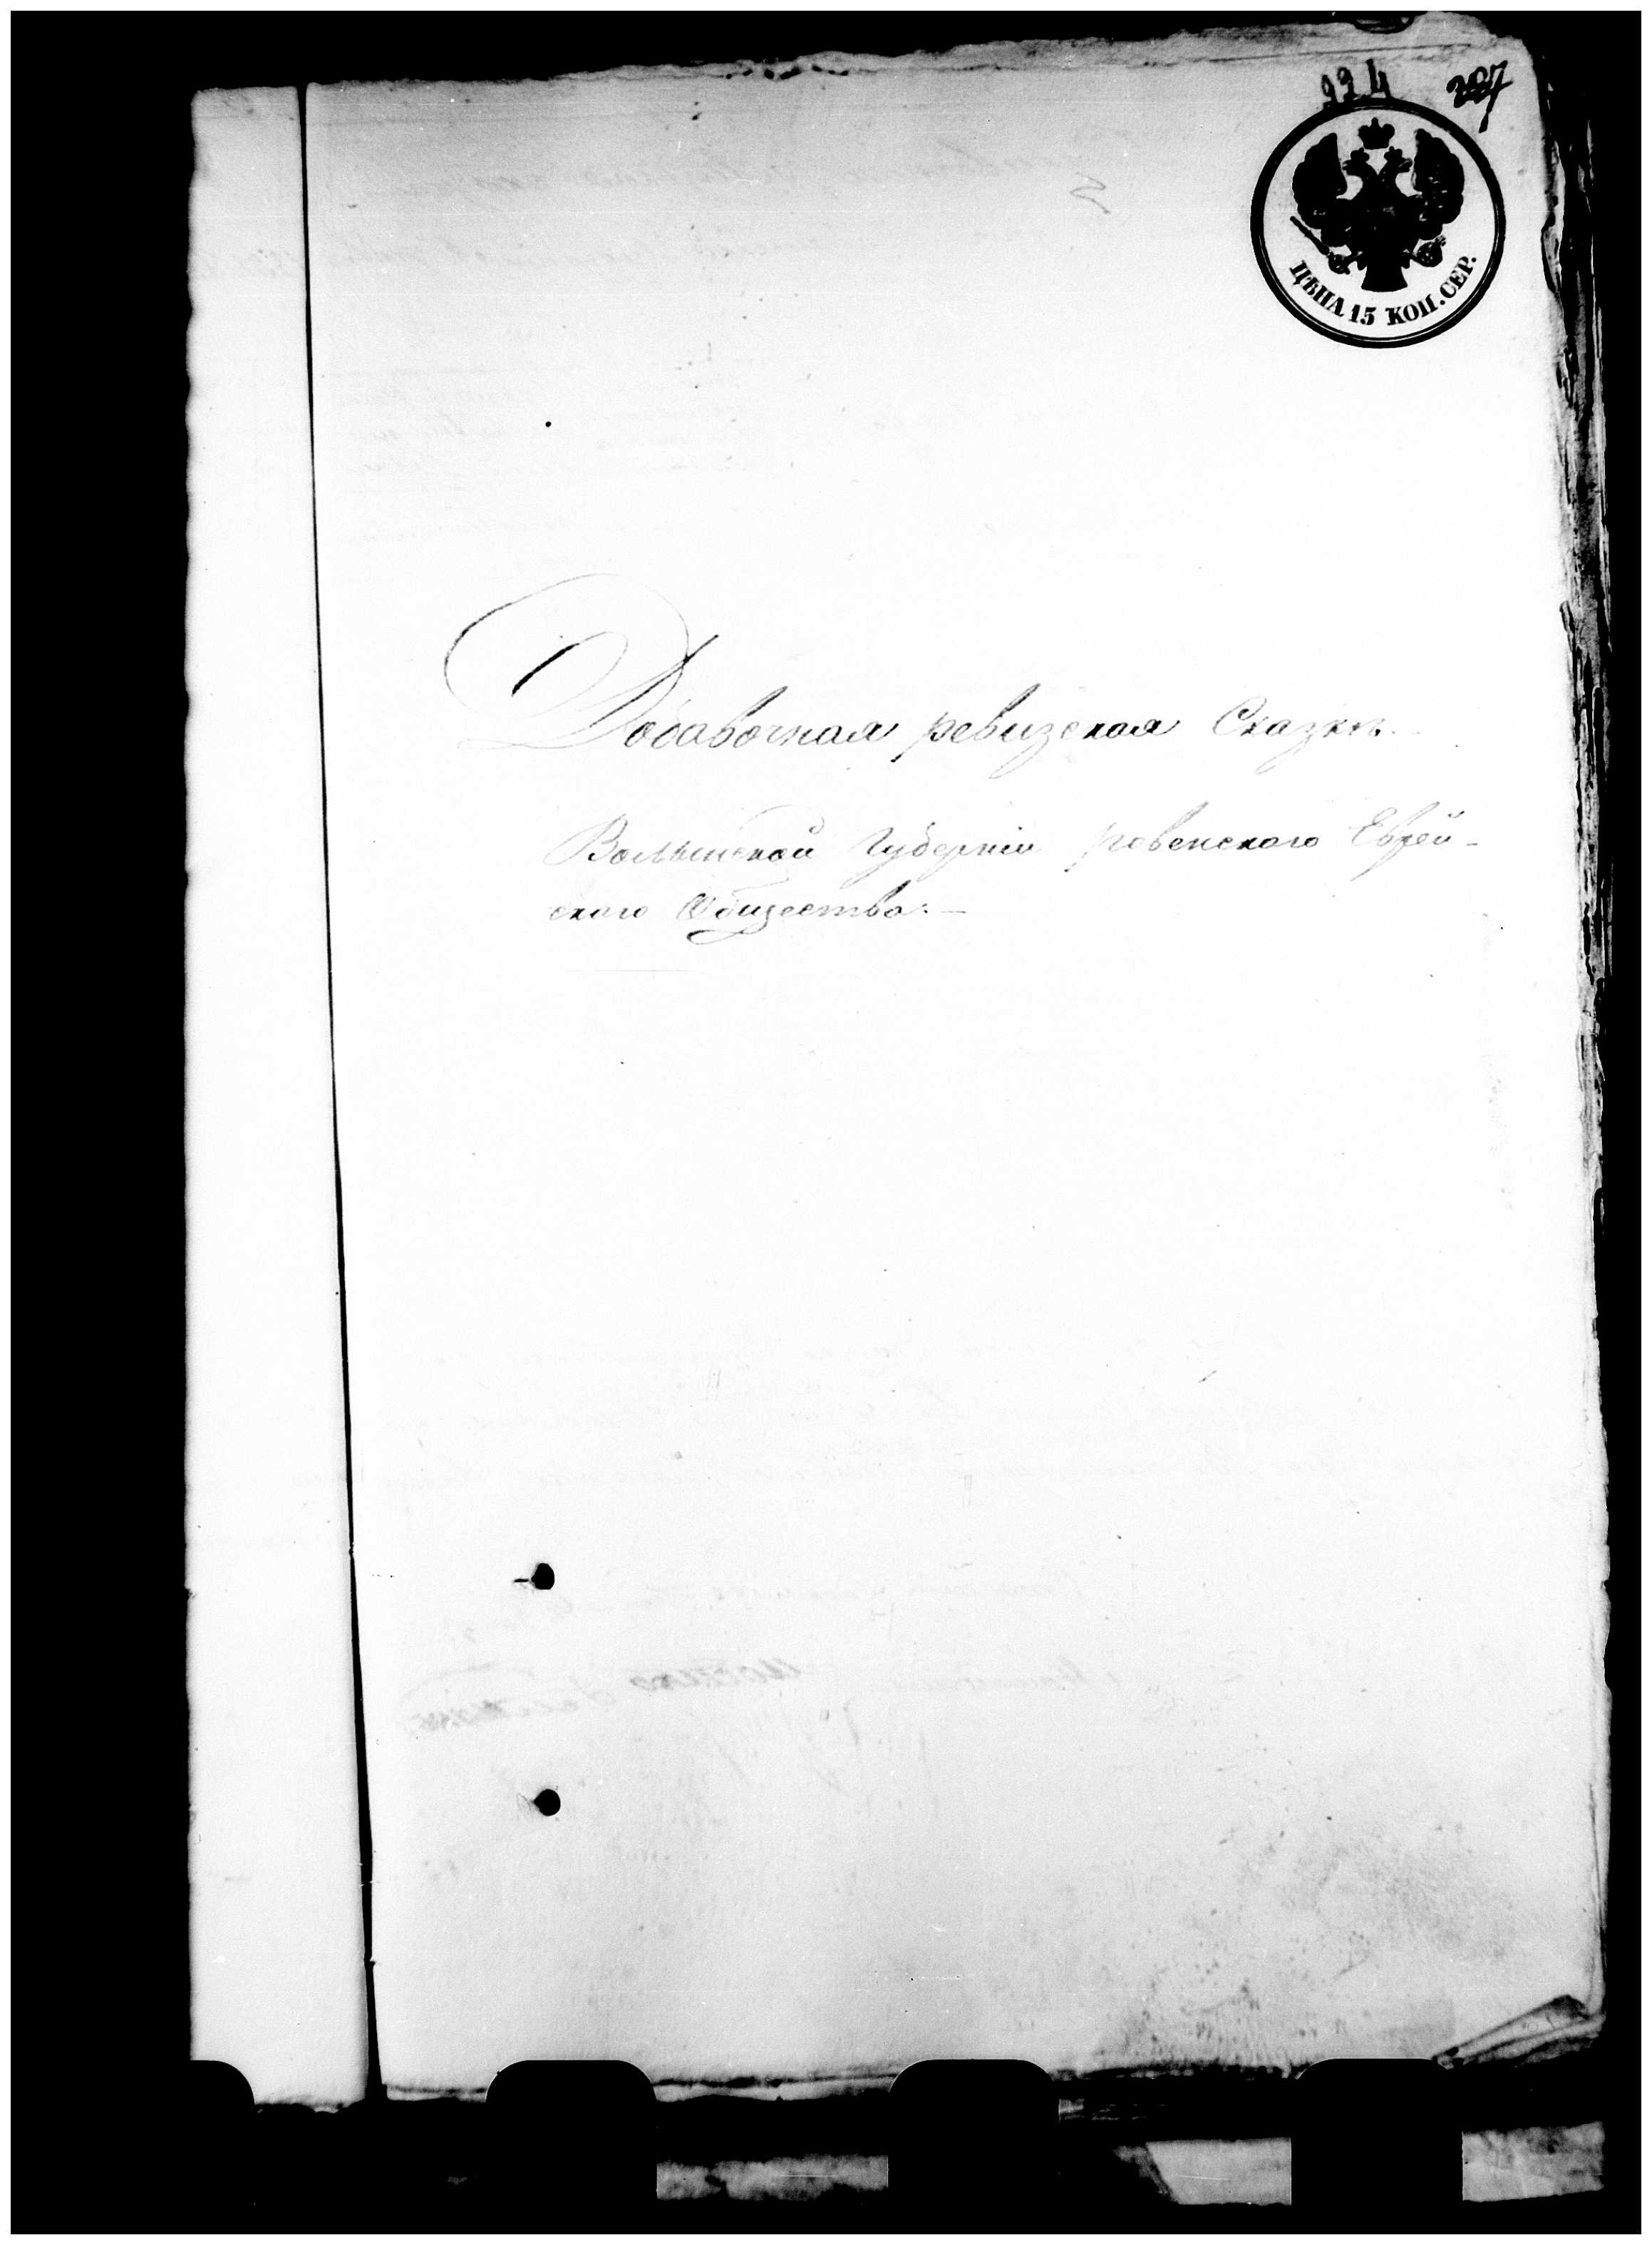 224 227
ЦѢНА 15 КОП. СЕР.
Добавочная ревизская Сказка
Волынской Губерніи ровенского Еврей-
ского Общества:—